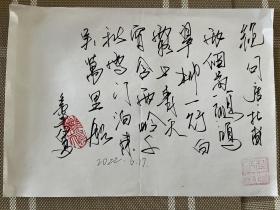 絕句 唐 杜甫
两個黄鸝鳴
翠柳一行白
鷺上青天
窗含西岭千
秋雪门泊東
吴萬里船
2022.6.17.